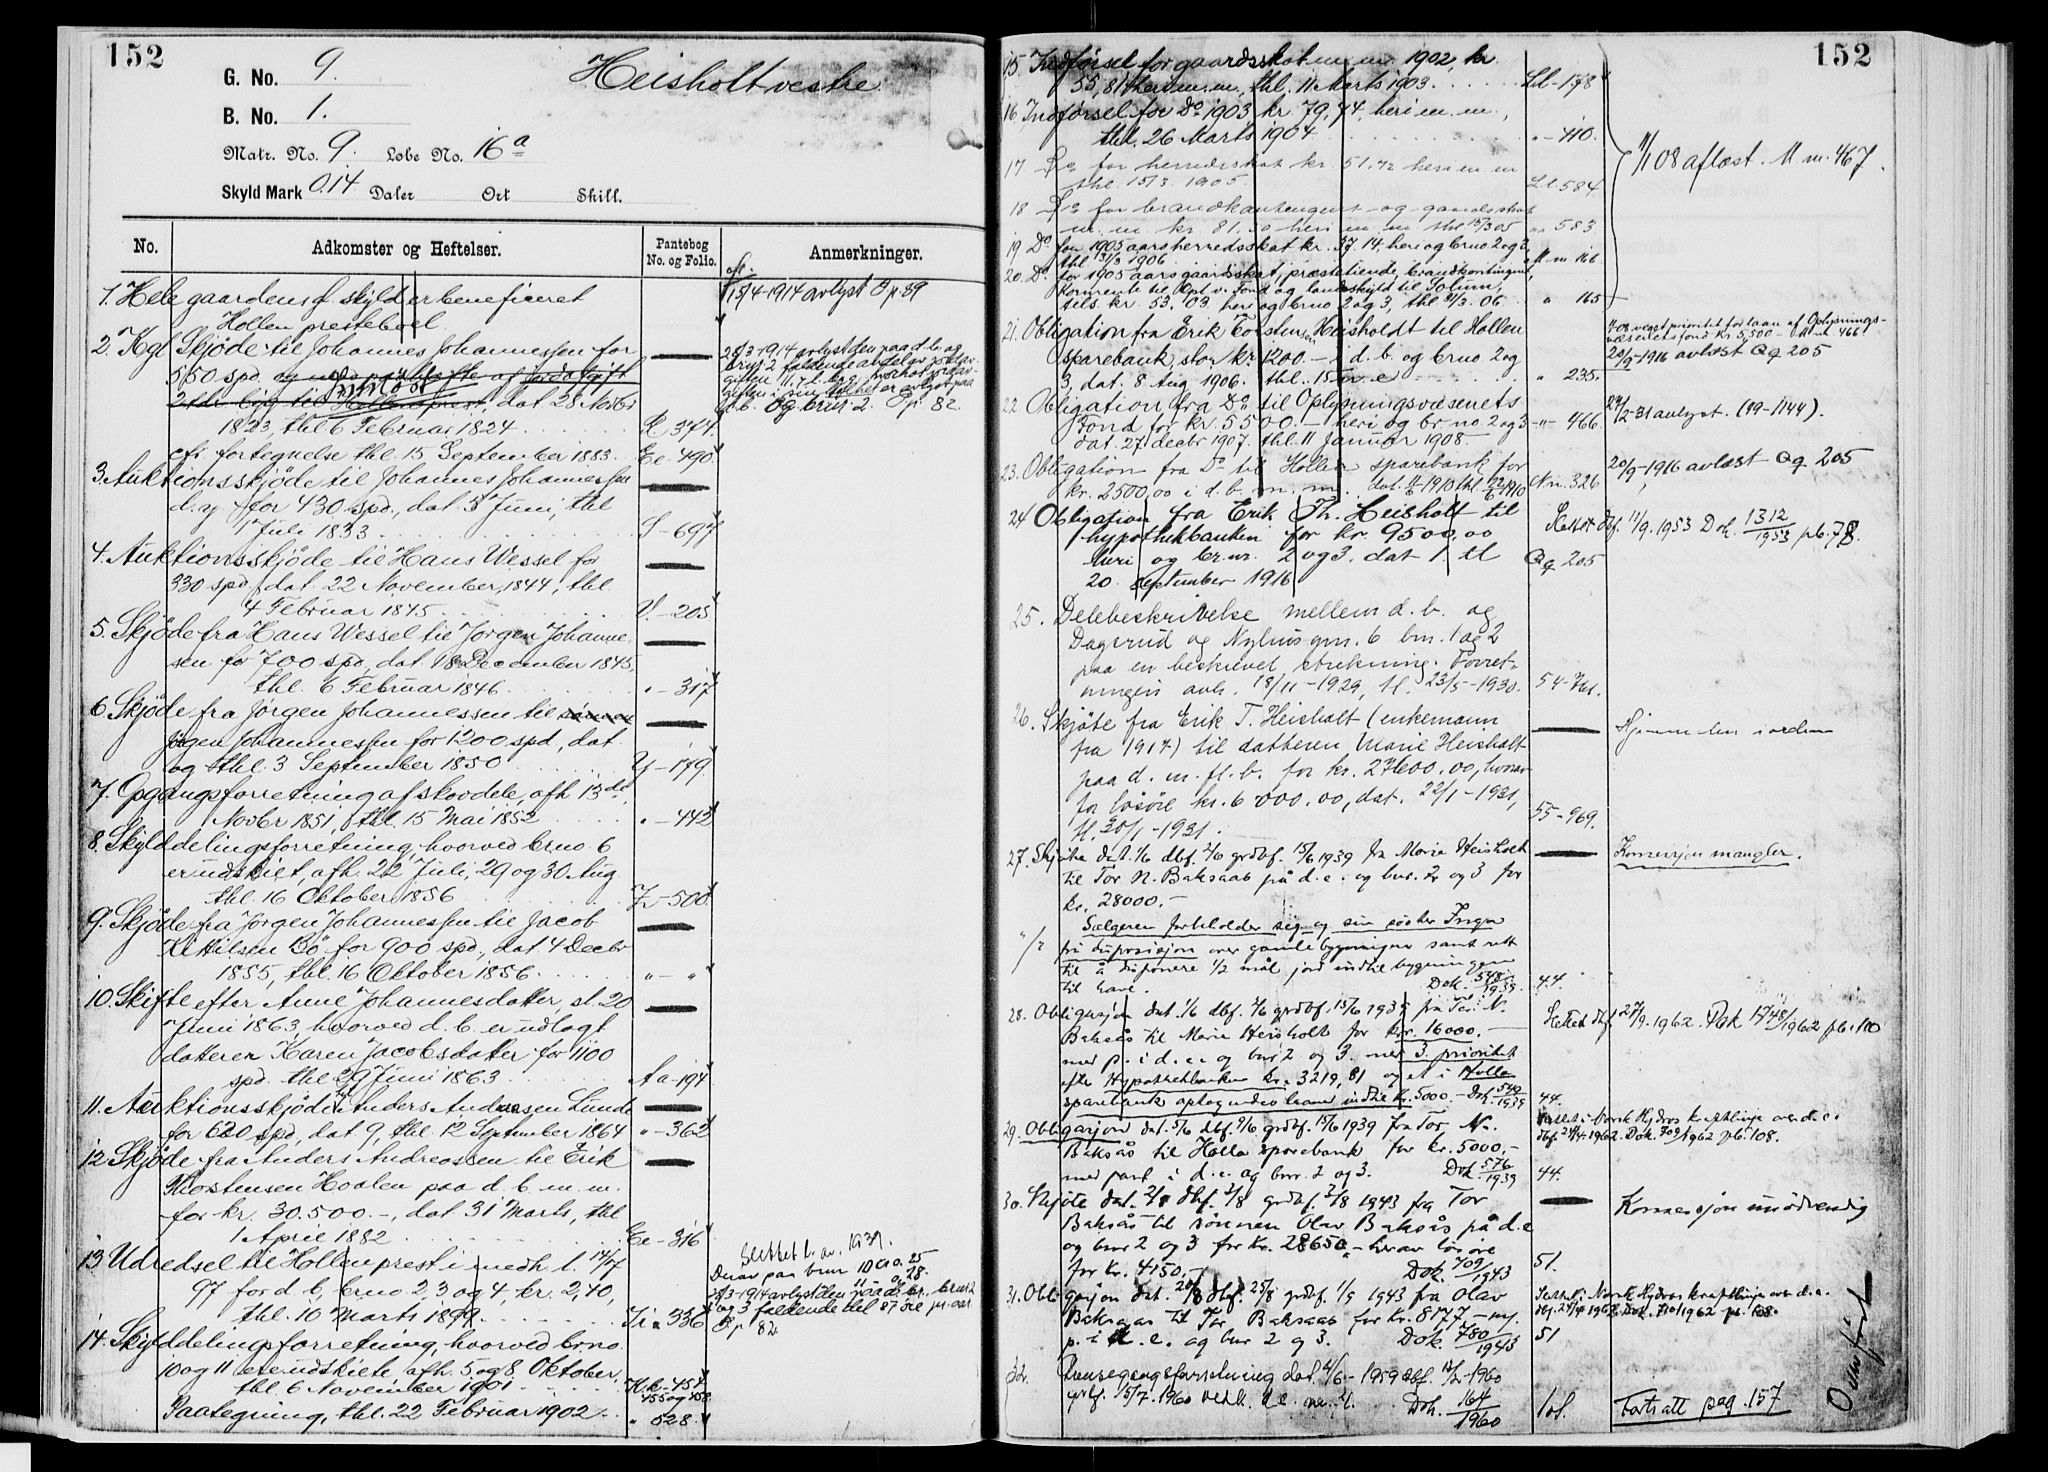 152
G. No. 9.
Heisholt vestre
B. No. 1.
Matr. No. 9. Løbe No. 16a
Skyld Mark 0.14 Daler Ort Skill.
No. Adkomster og Heftelser. Pantebog No. og Folio. Anmerkninger.
1. Hele gaardens skyld er beneficeret
Hollen presteboel
15/4-1914 avlyst B p 89
2. Kgl Skjøde til Johannes Johannessen for
550 spd og mod paahefte af Jordafgift
2 tdr. byg til Hollens prest, dat 28 Novbr
1823, thl 6 Februar 1824 R. 374.
28/3-1914 avlyst den paa d. b. og
brnr 2 faldende andel av jordav-
og brnr. 2. B p. 82.
cfr. fortegnelse thl. 15 September 1883. Ee-490
3. Auktionsskjøde til Johannes Johannessen
d. y for 430 spd., dat. 3 Juni, thl
1 Juli 1833 S-697
4. Auktionsskjøde til Hans Wessel for
330 spd, dat. 22 November, 1844, thl.
4 Februar 1845 V-205
5. Skjøde fra Hans Wessel til Jørgen Johanne-
sen for 700 spd, dat. 18 December 1845,
thl. 6 Februar 1846 "-317
6. Skjøde fra Jørgen Johannessen til sønnen
Jørgen Johannessen for 1200 spd, dat.
og thl. 3 September 1850 Y-179
7. Opgangsforretning af skovdele, afh. 13de
Novbr 1851, thl. 15 Mai 1852 "-442
8. Skylddelingsforretning, hvorved brno 6
er udskilt, afh. 22 Juli, 29 og 30 Aug.
thl. 16 Oktober 1856 Z-500
9. Skjøde fra Jørgen Johannessen til Jacob
Kittilsen Bø for 900 spd., dat 4 Decbr
1855, thl. 16 Oktober 1856 "-"
10. Skifte efter Anne Johannesdatter, sl. 20
Juni 1863, hvorved d. b. er udlagt
datteren Karen Jacobsdatter for 1100
spd. thl. 29 Juni 1863 Aa-194
11. Auktionsskjøde til Anders Andreasen Lunde
for 620 spd, dat. 9, thl. 12 September 1864 "-362
12. Skjøde fra Anders Andreassen til Erik
Thorstensen Hoalen paa d. b. m. m.
for kr. 30.500.-, dat. 31 Marts, thl
1 April 1882 Ee-316
13. Udredsel til Hollen prest i medh. l. 14/7
97 for d. b, brno 2, 3 og 4, kr. 2,40,
thl. 10 Marts 1899 Ii-336
Slettet l. av. 1939.
Derav paa brnr 10 0.25
28/3-1914 avlyst den paa d. br., brnr 2
og 3 faldende del 87 øre pr. aar
B p 82
14. Skylddelingsforretning, hvorved brno.
10 og 11 ere udskilte, afh. 5 og 8 Oktober,
thl. 6 November 1901 Kk-454
455 og 458
Paategning, thl. 22 Februar 1902 "528
152
15. Indførsel for gaardsskat m. m. 1902, kr.
55,81 heri m. m, thl. 11 Marts 1903 Ll-178
16. Indførsel for Do 1903, kr. 79,74, heri m. m.,
thl. 26 Marts 1904 "-410.
17. Do for herredsskat kr. 51.72 heri m m
thl. 15/3 1905. Ll-584
11/1 08 aflæst. M m. 467.
18. Do for brandkontingent og gaardsskat
m. m. kr. 81.50 heri m. m. thl 15/3 05 " 583
19. Do for 1905 aars herredsskat kr. 37.14. heri og brno 2 og 3,
thl 31/3 1906. M m 166
20. Do for 1905 aars gaardsskat, præstetiende, brandkontingent,
Kornrente til Opl. v. Fond og landskyld til Solum,
tils. kr. 53.03 heri og brno 2 og 3, thl 31/3. 06. " 165
21. Obligation fra Erik Torstensen Heisholdt til Hollen
sparebank, stor kr. 1200.- i d. b. og brno 2 og
3, dat. 8 Aug 1906. thl. 15 " 235.
1908 veget prioritet for laan af Oplysnings-
væsenets fond kr. 5,500 - M m 466
20/9-1916 avlæst Qq 205
22. Obligation fra Do til Oplysningsvæsenets
Fond for kr. 5500.- heri og br no 2 og 3 -"- 466.
dat. 27 decbr 1907. thl. 11 Januar 1908-
24/2-31 avlyst. (99-1144).
23. Obligation fra Do til Hollen sparebank for
kr. 2500,00 i d. b. m. m. N n. 326
20/9-1916 avlæst Qq 205
24 Obligation fra Erik Th. Heisholt til
hypothekbanken for kr. 9500,00
heri og br. nr. 2 og 3. dat 1. tl Qq 205
20. september 1916
Slettet dbf. 11/9. 1953 Dok. 1312/1953 pb. 78.
25. Delebeskrivelse mellem d. b. og
Dagsrud og Nyhus gnr. 6 bnr. 1 og 2
paa en beskrevet strekning. Forret-
ningen avh. 18/11-1929, tl. 23/5-1930. 54-761.
26. Skjøte fra Erik T. Heisholt (enkemann
fra 1917) til datteren Marie Heisholt
paa d. m. fl. b. for kr. 27600.00, hvorav
for løsøre kr. 6000.00, dat. 22/1-1931,
tl. 30/1-1931. 55-969.
Hjemmelen i orden
27. Skjøte dat. 1/6 dbf. 2/6 grdbf. 15/6 1939 fra Marie Heisholt
til Tor N. Baksaas på d. e. og bnr. 2 og 3 for
kr. 28000.-
Konsesjon mangler.
Selgeren forbeholder sig og sin søster Inga
fri disposisjon over gamlebygningen samt rett
til å disponere 1/2 mål jord indtil bygningen
til have. Dok. 548/1939. 44.
28. Obligasjon dat. 1/6 dbf. 2/6 grdbf. 15/6 1939 fra Tor N.
Baksås til Marie Heisholt for kr. 16000.-
med p. i d. e. og bnr 2 og 3. med 3. prioritet
efter Hypothekbanken kr. 3219,81 og et i Holla
sparebank optagendes laan indtil kr. 5000.- Dok. 549/1939 44.
Slettet dbf 27/9. 1962. Dok 1748/1962 pb. 110
29. Obligasjon dat. 5/6 dbf. 9/6 grdbf. 15/6 1939 fra Tor N.
Baksås til Holla sparebank for kr. 5000.-
med pant i d. e. og bnr. 2 og 3. Dok 576/1939 44.
dbf. 24/4.1962. Dok. 709/1962 pb. 108.
30. Skjøte dat. 2/8 dbf. 2/8 grdbf. 2/8 1943 fra Tor
Baksås til sønnen Olav Baksås på d. e
og bnr 2 og 3 for kr. 28650.- herav løsøre
for kr. 4150.- Dok. 709/1943 51.
Konsesjon unødvendig
31. Obligasjon dat. 20/8 dbf. 25/8 grdbf. 1/9 1943 fra Olav
Baksaas til Tor Baksaas for kr. 8177.- m.
p. i d. e. og bnr 2 og 3. Dok. 780/1943 51
dbf. 24/4 1962. Dok. 710/1962 pb. 108.
32. Grensegangsforretning dat. 4/6-1959 dbf. 12/2-1960
grbf. 15/7. 1960 vedk. d. e. m. fl. Dok. 164/1960 101.
Fortsatt pag. 157
Overført